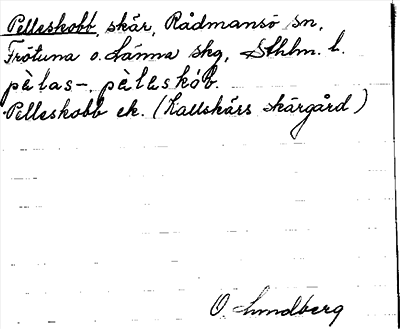 Pelleskobb, skär, Rådmansö sn,
Frötuna o. Länna skg, Sthlm. l.
pèlas-, pèlaskòb.
Pelleskobb ek. (Kallskärs skärgård)
O. Lundberg